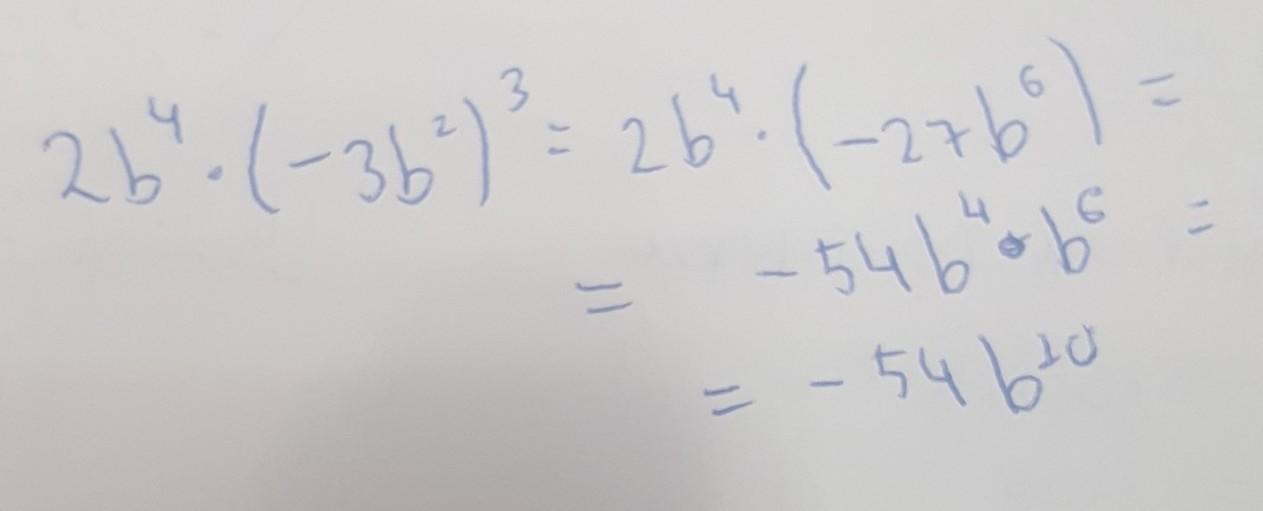 2b⁴ · (-3b²)³ = 2b⁴ · (-27b⁶) =
= -54b⁴ · b⁶ =
= -54b¹⁰